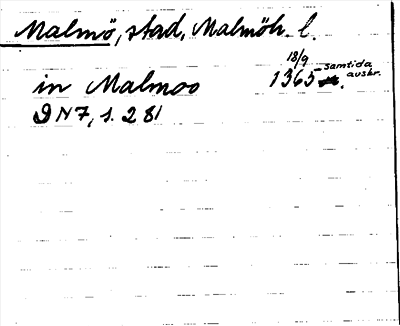 Malmö, stad, Malmöh. l.
18/9 samtida
in Malmoo 1365 avskr.
DN 7, s. 281